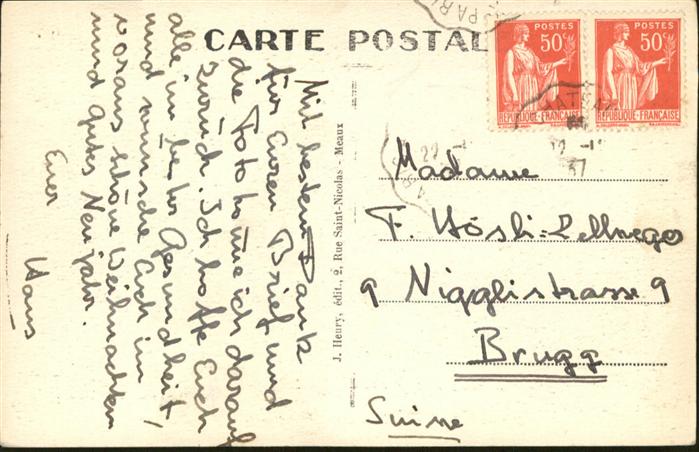 CARTE POSTALE
Mit bestem Dank
für Euren Brief und
die Foto komme ich darauf
zurück. Ich hoffe Euch
alle in bester Gesundheit,
und wünsche Euch im
voraus schöne Weihnachten
und gutes Neujahr.
Euer
Hans
J. Heury, édit., 2, Rue Saint-Nicolas - Meaux
POSTES
50c
REPUBLIQUE-FRANÇAISE
POSTES
50c
REPUBLIQUE-FRANÇAISE
PARI
37
Madame
F. Hösli-Zellweger
9 Nigglistrasse 9
Brugg
Suisse